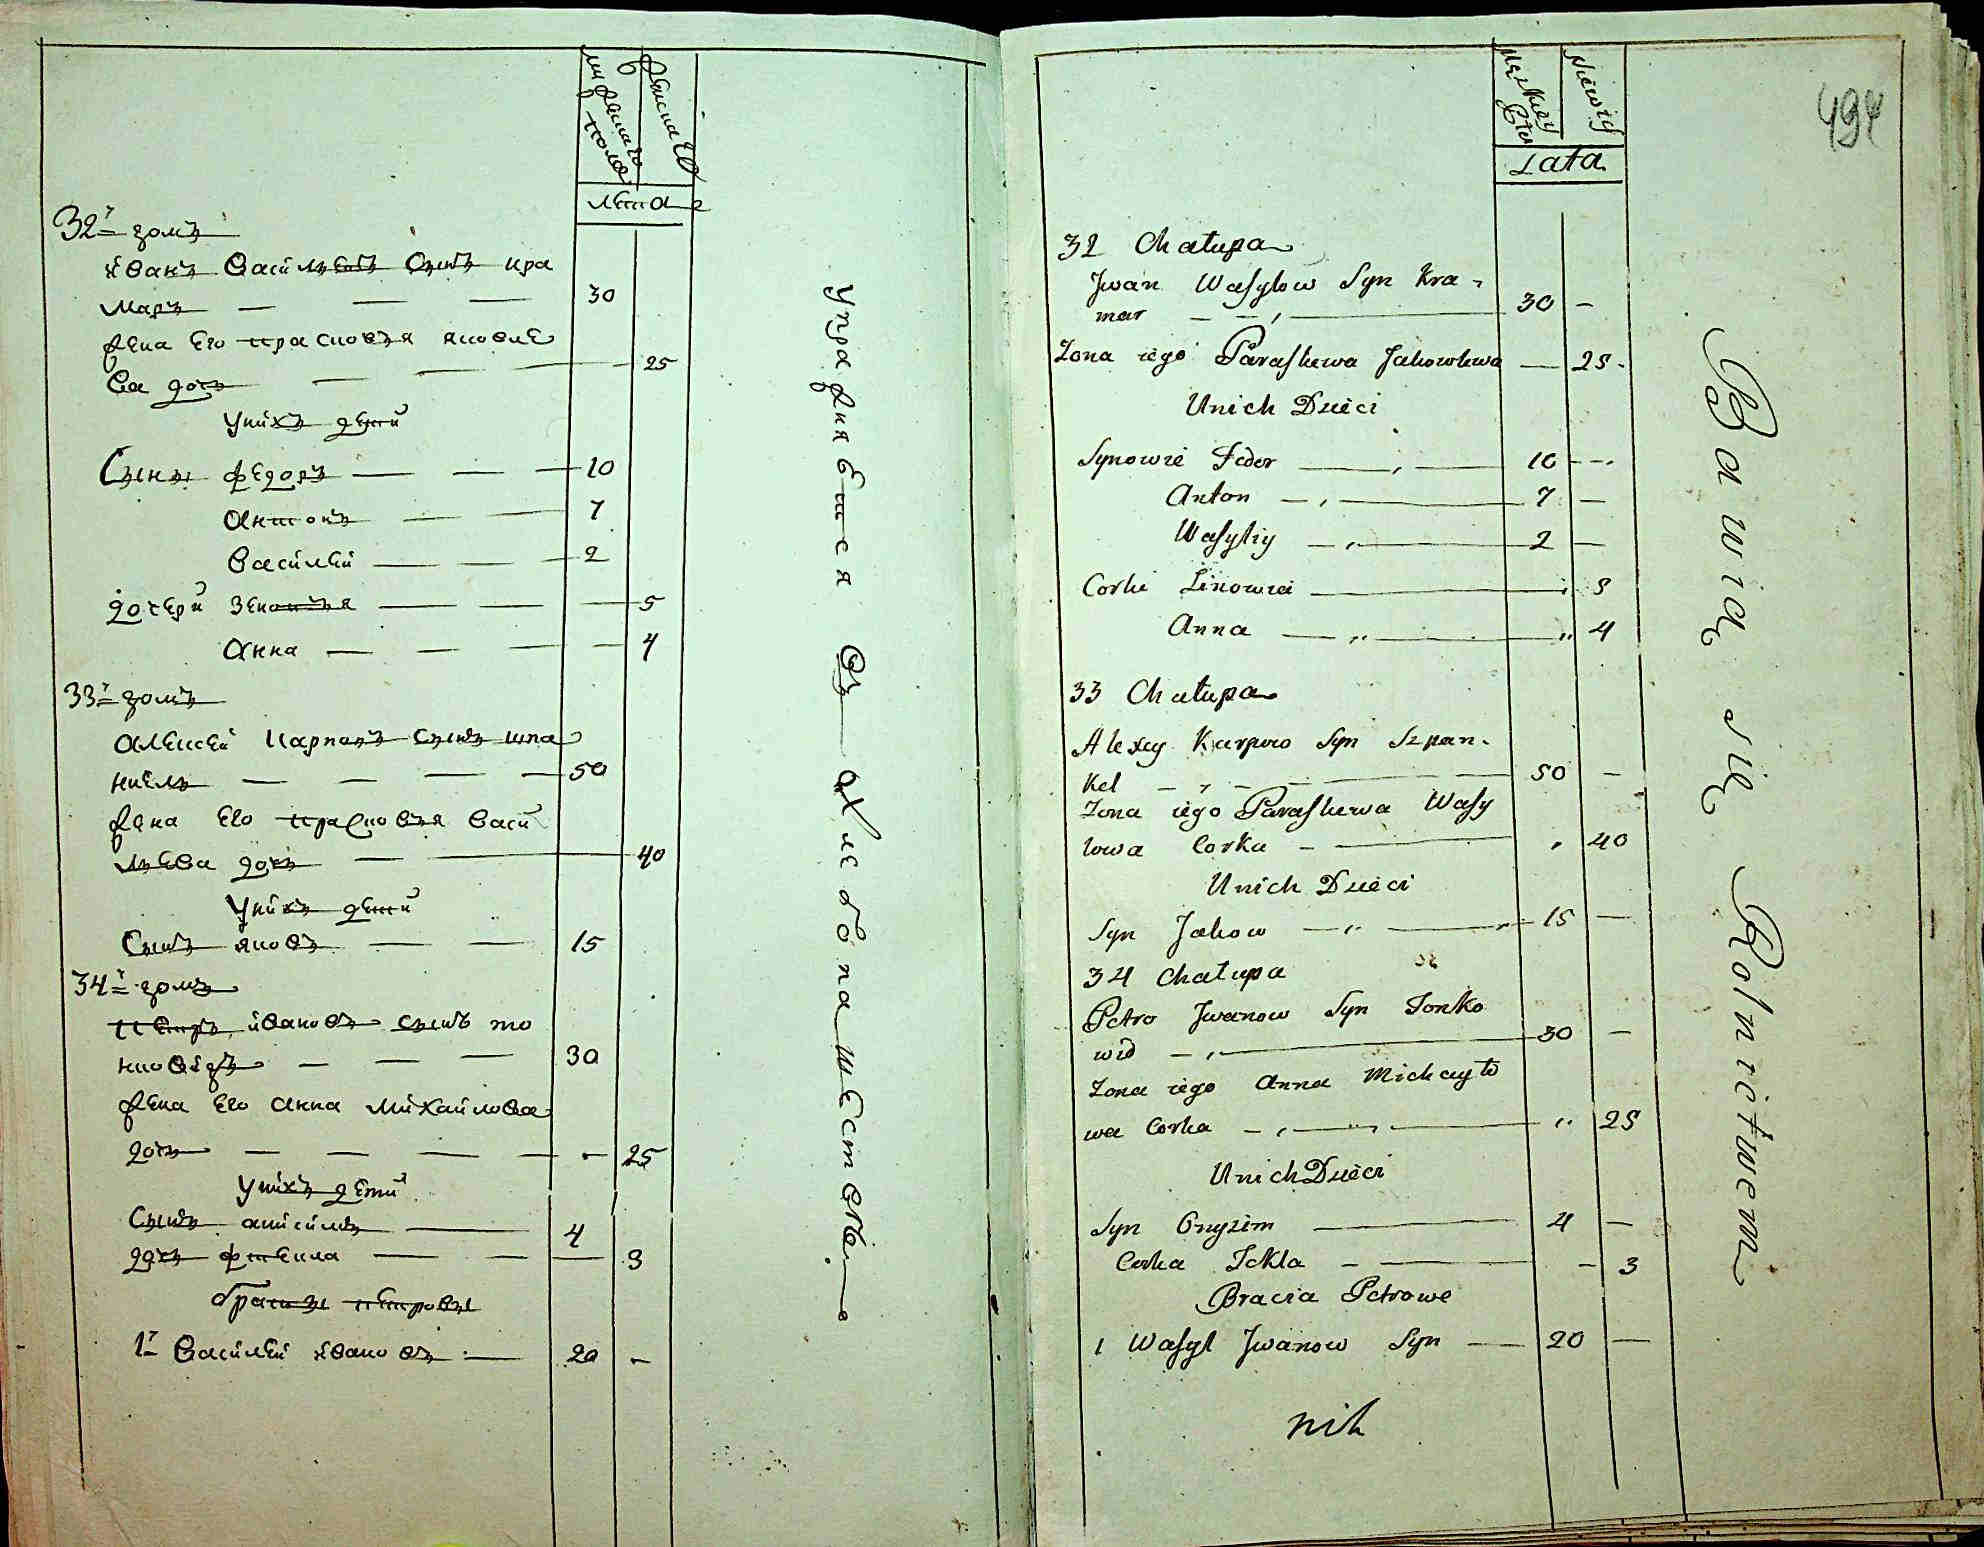 мужеска
го
пола
женска
лета
32й домъ
иванъ васильевъ сынъ кра
маръ — — — 30
жена его прасковья яковле
ва дочь — — — 25
Уних дети
Сыны федоръ — — — 10
антонъ — — 7
василей — — — 2
дочери Зеновия — — — 5
анна — — — — 4
33й домъ
алексей карповъ сынъ шпа
нкель — — — — 50
жена его прасковья васи
льева дочь — — 40
Уних дети
Сынъ яковъ — — 15
34й домъ
петръ ивановъ сынъ то
нковидъ — — — 30
жена его анна михайлова
дочь — — — — — 25
Уних дети
Сынъ анисимъ — 4
дочь фтекла — — — 3
братьы петровы
1й василей ивановъ — 20 –
Упражняются въ хлебопашестве
Męzkiey
Płci
Niewiey
Lata
494
32 Chałupa
Jwan Wasylow Syn Kra-
mar — — 30 —
Zona iego Paraskewa Jakowlewa — 25.
Unich Dzieci
Synowie Fedor — 10 —
Anton — 7 —
Wasyliy — 2 —
Corki Zinowia — 5
Anna — 4
33 Chałupa
Alexey Karpow Syn Szpan-
kel — 50 —
Zona iego Paraskewa Wasy
lowa Corka — 40
Unich Dzieci
Syn Jakow — 15 —
34 Chałupa
Petro Jwanow Syn Tonko
wid — 30 —
Zona iego Anna Michayło
wa Corka — 25
Unich Dzieci
Syn Onyzim — 4 —
Corka Tekla — 3
Bracia Petrowe
1 Wasyl Jwanow Syn — 20 —
Bawią się Rolnictwem